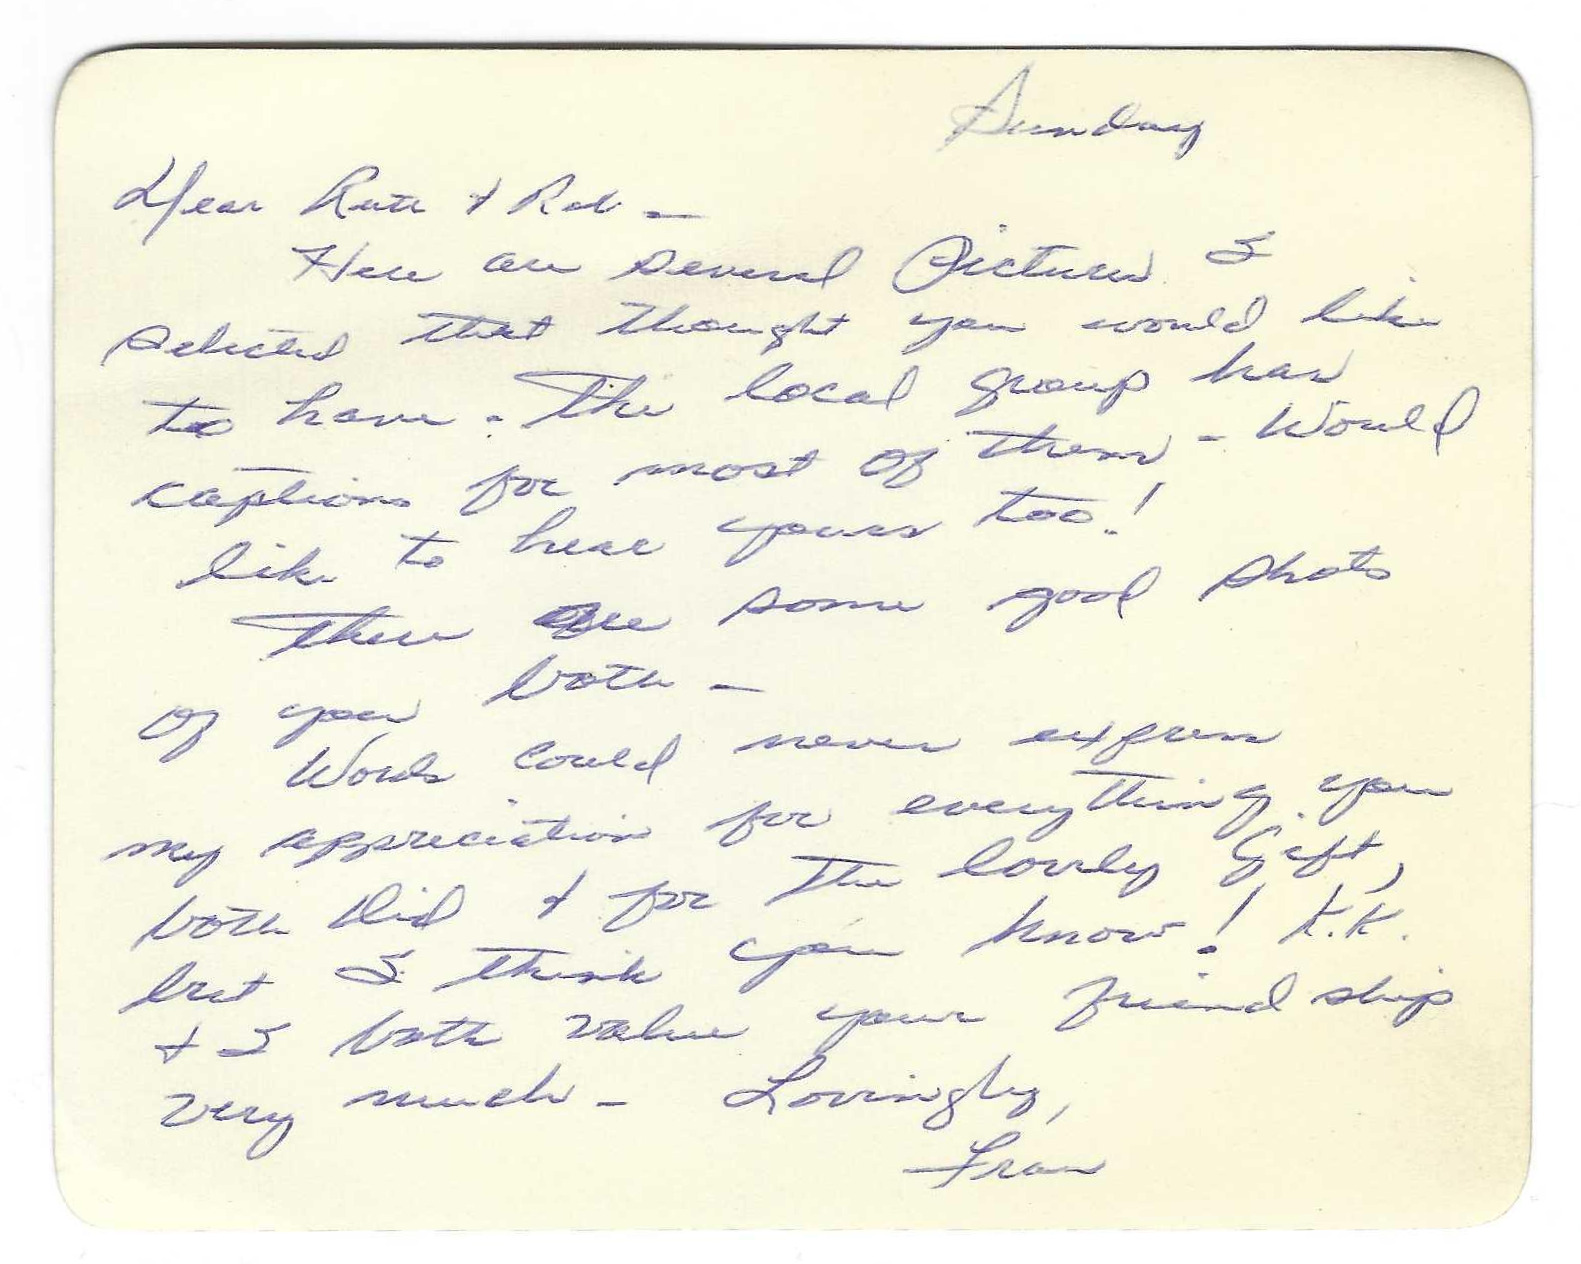 Sunday
Dear Ruth & Rob -
Here are several Pictures I
selected that thought you would like
to have - The local group has
captions for most of them - Would
like to hear yours too!
There are some good shots
of you both -
Words could never express
my appreciation for everything you
both did & for the lovely gift,
but I think you know! K.K.
& I both value your friendship
very much - Lovingly,
Fran